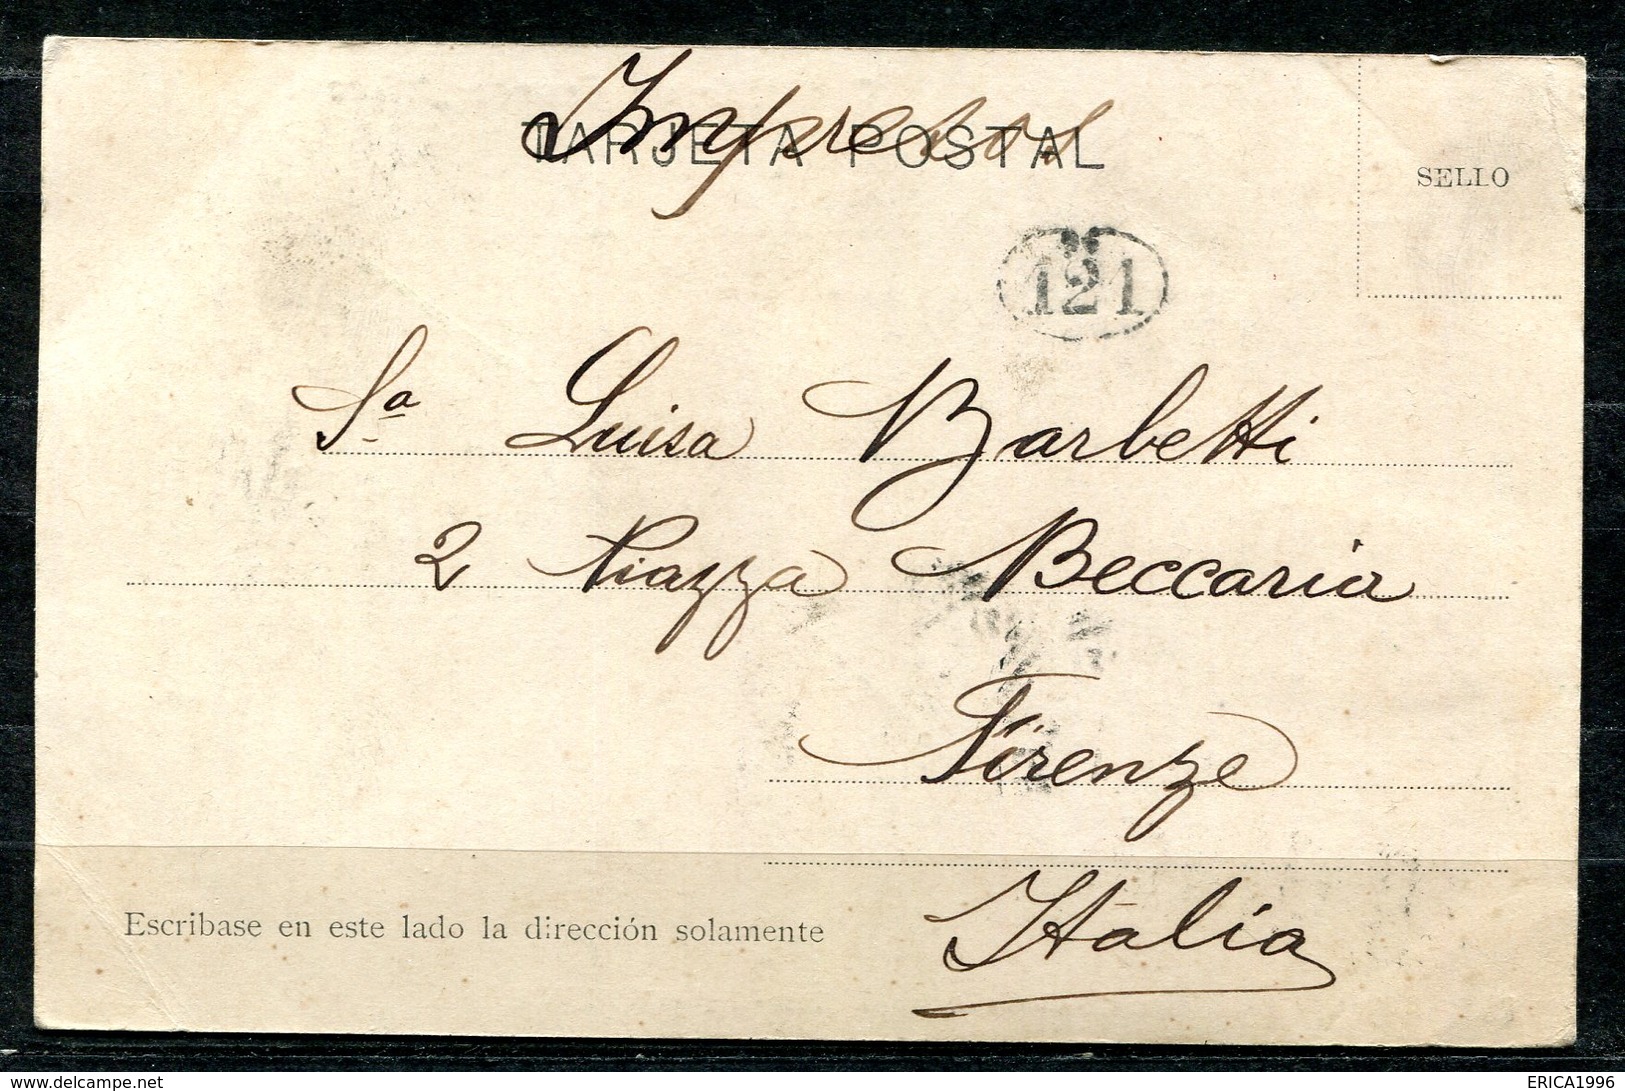 Impresos
TARJETA POSTAL
SELLO
121
Sa Luisa Barbetti
2 Piazza Beccaria
Firenze
Italia
Escribase en este lado la dirección solamente
delcampe.net
ERICA1996